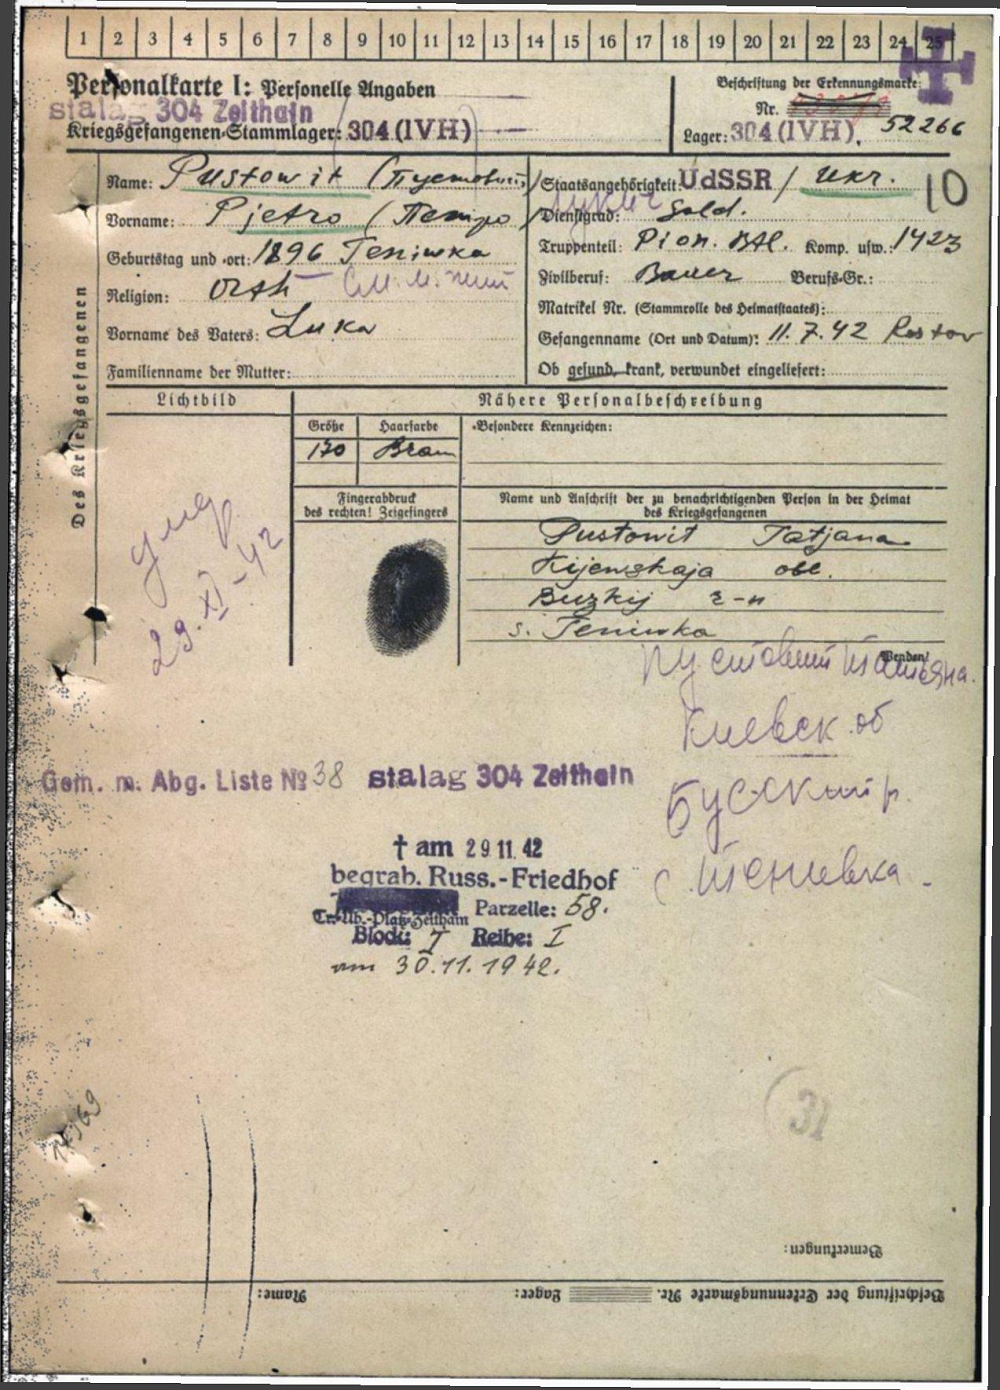 1 2 3 4 5 6 7 8 9 10 11 12 13 14 15 16 17 18 19 20 21 22 23 24 25
Personalkarte I: Personelle Angaben
stalag 304 Zeithain
Kriegsgefangenen-Stammlager: 304 (IVH)
Beschriftung der Erkennungsmarke:
Nr. 52266
Lager: 304 (IVH).
Des Kriegsgefangenen
Name: Pustowit (Пустовит)
Vorname: Pjetro (Петро)
Geburtstag und -ort: 1896 Teniwka
Religion: Orth
Vorname des Vaters: Luka
Familienname der Mutter:
Staatsangehörigkeit: UdSSR / Ukr. 10
Dienstgrad: Sold.
Truppenteil: Pion. Btl. Komp. usw.: 1423
Zivilberuf: Bauer Berufs-Gr.:
Matrikel Nr. (Stammrolle des Heimatstaates):
Gefangenname (Ort und Datum): 11.7.42 Rostov
Ob gesund, krank, verwundet eingeliefert:
Lichtbild
Nähere Personalbeschreibung
Größe Haarfarbe Besondere Kennzeichen:
170 Braun
Fingerabdruck
des rechten! Zeigefingers
Name und Anschrift der zu benachrichtigenden Person in der Heimat
des Kriegsgefangenen
Pustowit Tatjana
Kijewskaja obl.
Buzkij r-n
s. Teniwka
Wenden!
умер
29.XI-42
Пустовит Татьяна.
Киевск. об
Бусский р.
с. Теневка
Gem. m. Abg. Liste № 38 stalag 304 Zeithain
† am 29 11. 42
begrab. Russ.-Friedhof
Tr.-Üb.-Platz-Zeithain Parzelle: 58.
Block: I Reihe: I
am 30.11.1942.
(31
Bemerkungen:
Name: Lager: Beschriftung der Erkennungsmarke Nr.